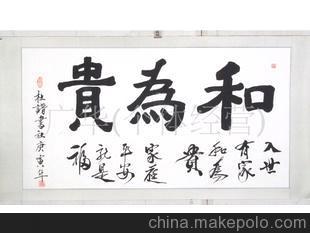 和為貴
入世
有家
和為
貴
家庭
平安
就是
福
杜諧書於庚寅年
广华(个体经营)
china.makepolo.com